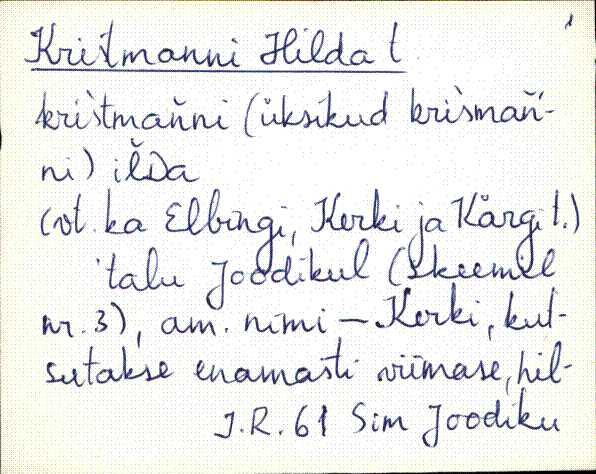 Kristmanni Hilda t
kristmaňni (üksikud krismaň-
ni) ilDa
(vt. ka Elbingi, Kerki ja Kärgi t.)
'talu Joodikul (skeemil
nr. 3), am. nimi — Kerki, kut-
sutakse enamasti viimase, hil-
J.R. 61 Sim Joodiku